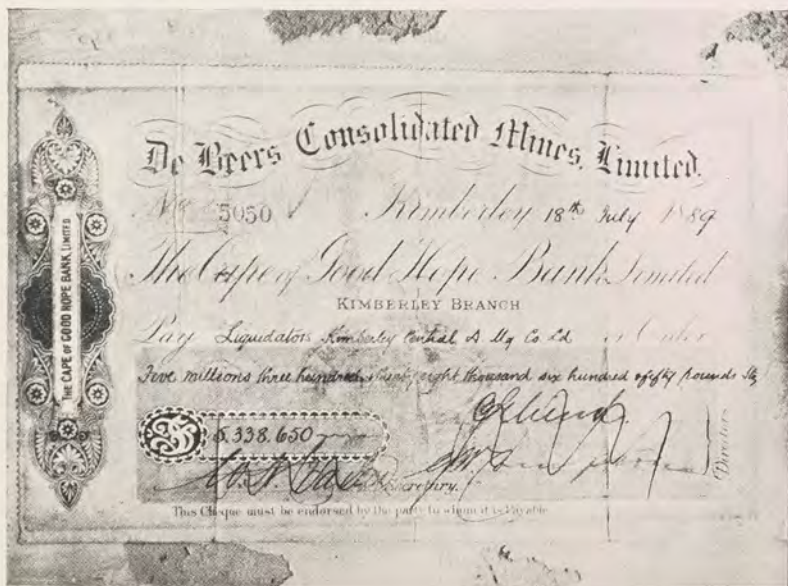 De Beers Consolidated Mines, Limited.
No 5050 Kimberley 18th July 1889
The Cape of Good Hope Bank Limited
KIMBERLEY BRANCH
Pay Liquidators Kimberley Central D. Mg Co Ld or Order
Five millions three hundred & thirty eight thousand six hundred & fifty pounds Stg
5.338.650
Secretary.
Directors
This Cheque must be endorsed by the party to whom it is Payable
THE CAPE OF GOOD HOPE BANK LIMITED